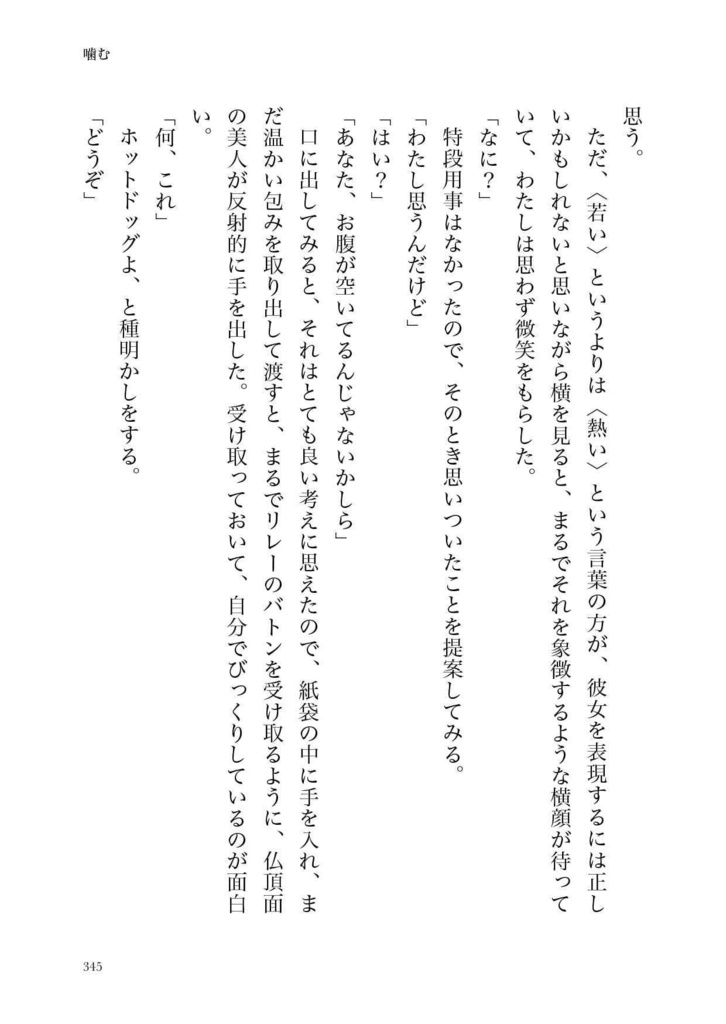 噛む
思う。
ただ、〈若い〉というよりは〈熱い〉という言葉の方が、彼女を表現するには正し
いかもしれないと思いながら横を見ると、まるでそれを象徴するような横顔が待って
いて、わたしは思わず微笑をもらした。
「なに？」
特段用事はなかったので、そのとき思いついたことを提案してみる。
「わたし思うんだけど」
「はい？」
「あなた、お腹が空いてるんじゃないかしら」
口に出してみると、それはとても良い考えに思えたので、紙袋の中に手を入れ、ま
だ温かい包みを取り出して渡すと、まるでリレーのバトンを受け取るように、仏頂面
の美人が反射的に手を出した。受け取っておいて、自分でびっくりしているのが面白
い。
「何、これ」
ホットドッグよ、と種明かしをする。
「どうぞ」
345